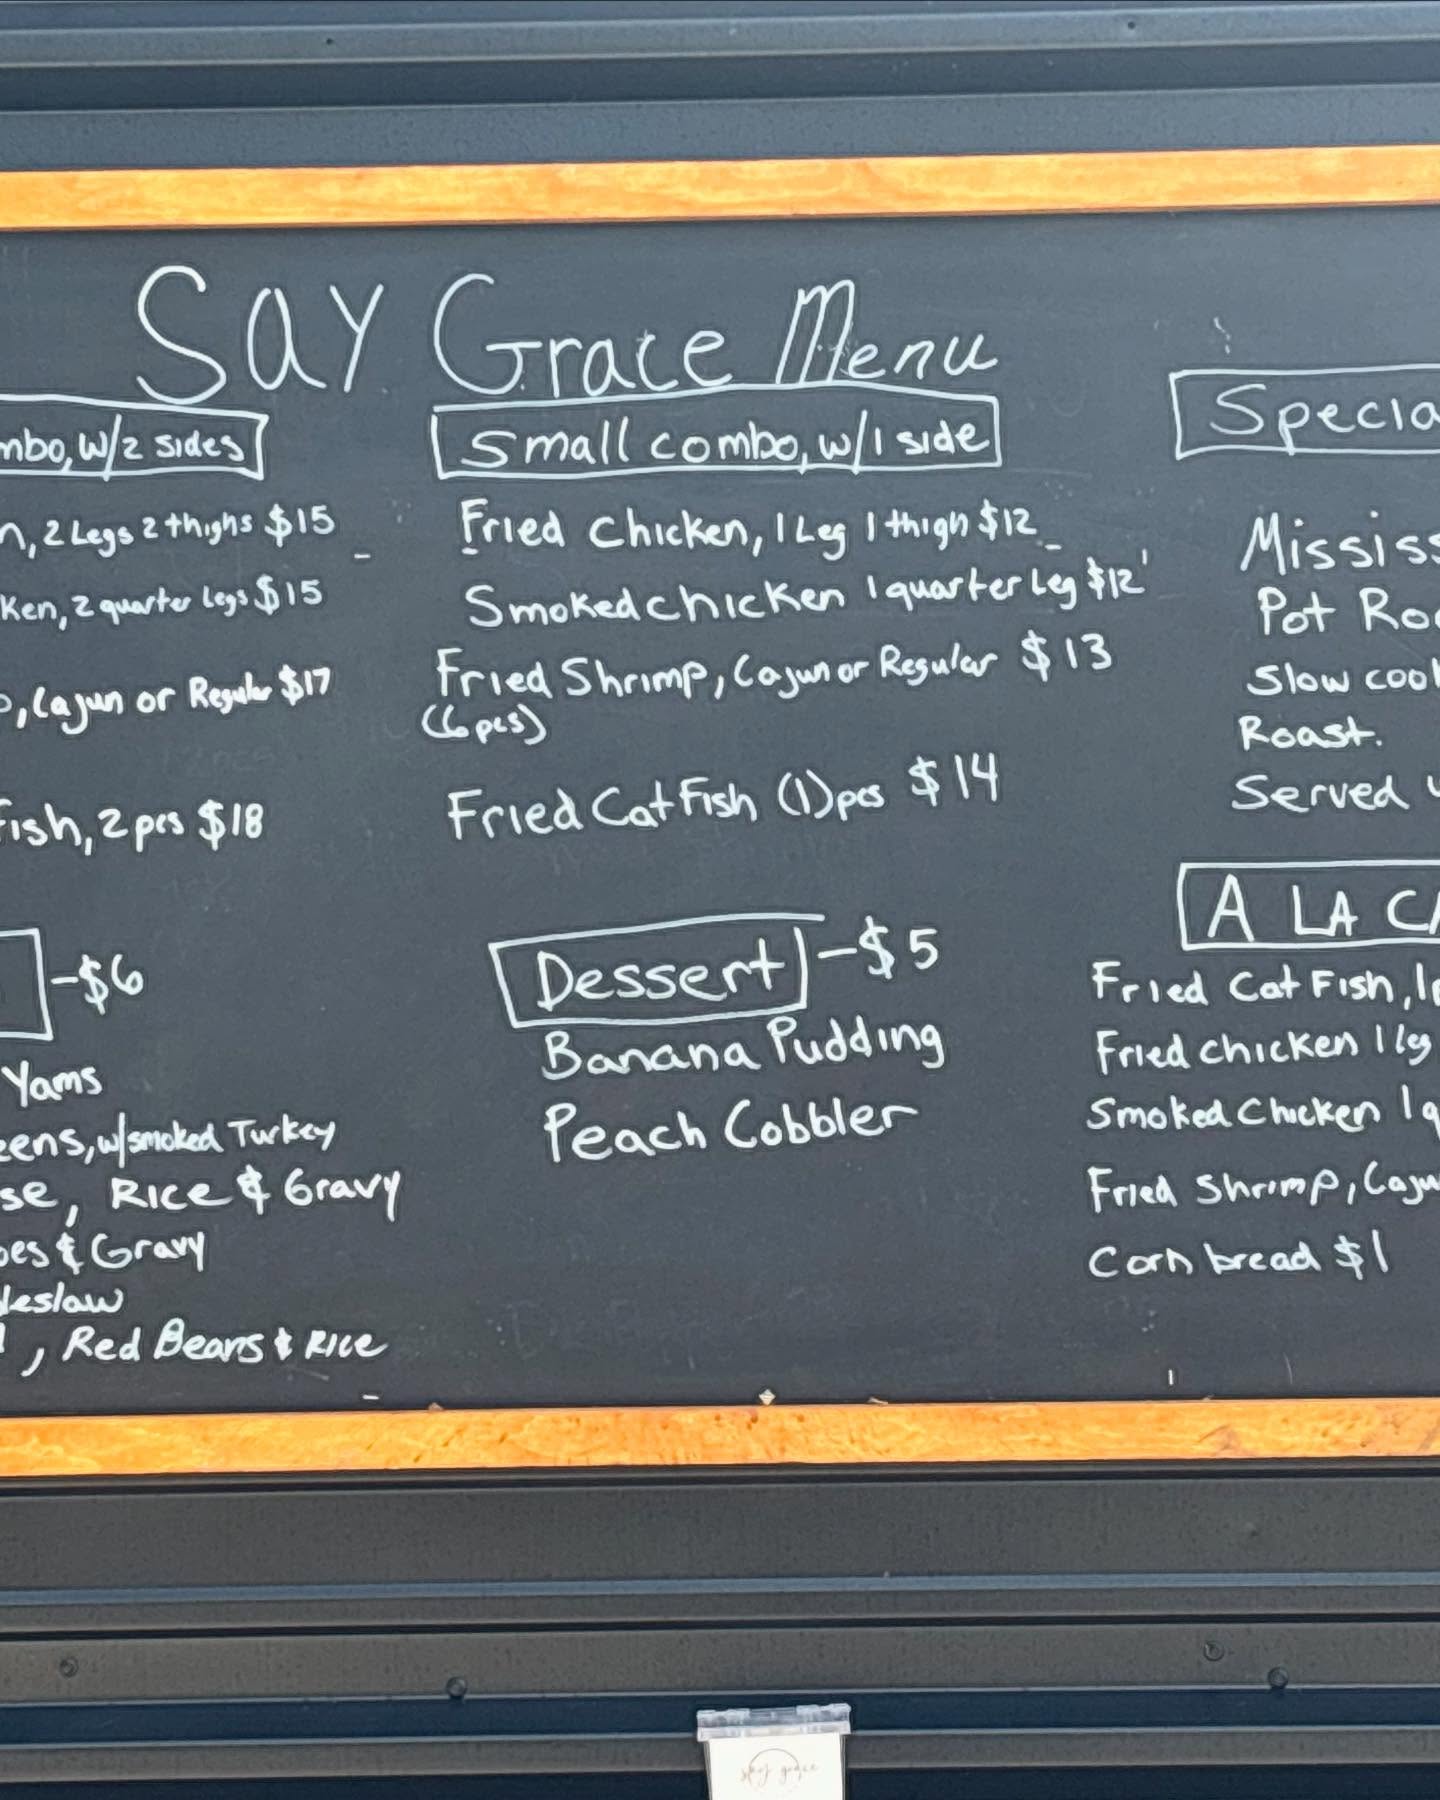 Say Grace Menu
mbo, w/2 sides
n, 2 Legs 2 thighs $15
ken, 2 quarter legs $15
, Cajun or Regular $17
fish, 2 pcs $18
-$6
Yams
eens, w/smoked Turkey
se, Rice & Gravy
oes & Gravy
leslaw
, Red Beans & Rice
Small combo, w/1 side
Fried Chicken, 1 Leg 1 thigh $12
Smoked chicken 1 quarter Leg $12
Fried Shrimp, Cajun or Regular $13
(6 pcs)
Fried Cat Fish (1) pcs $14
Dessert -$5
Banana Pudding
Peach Cobbler
Specia
Mississ
Pot Roa
Slow cook
Roast.
Served
A LA CA
Fried Cat Fish, 1p
Fried chicken 1 leg
Smoked Chicken 1 q
Fried Shrimp, Caju
Corn bread $1
say grace